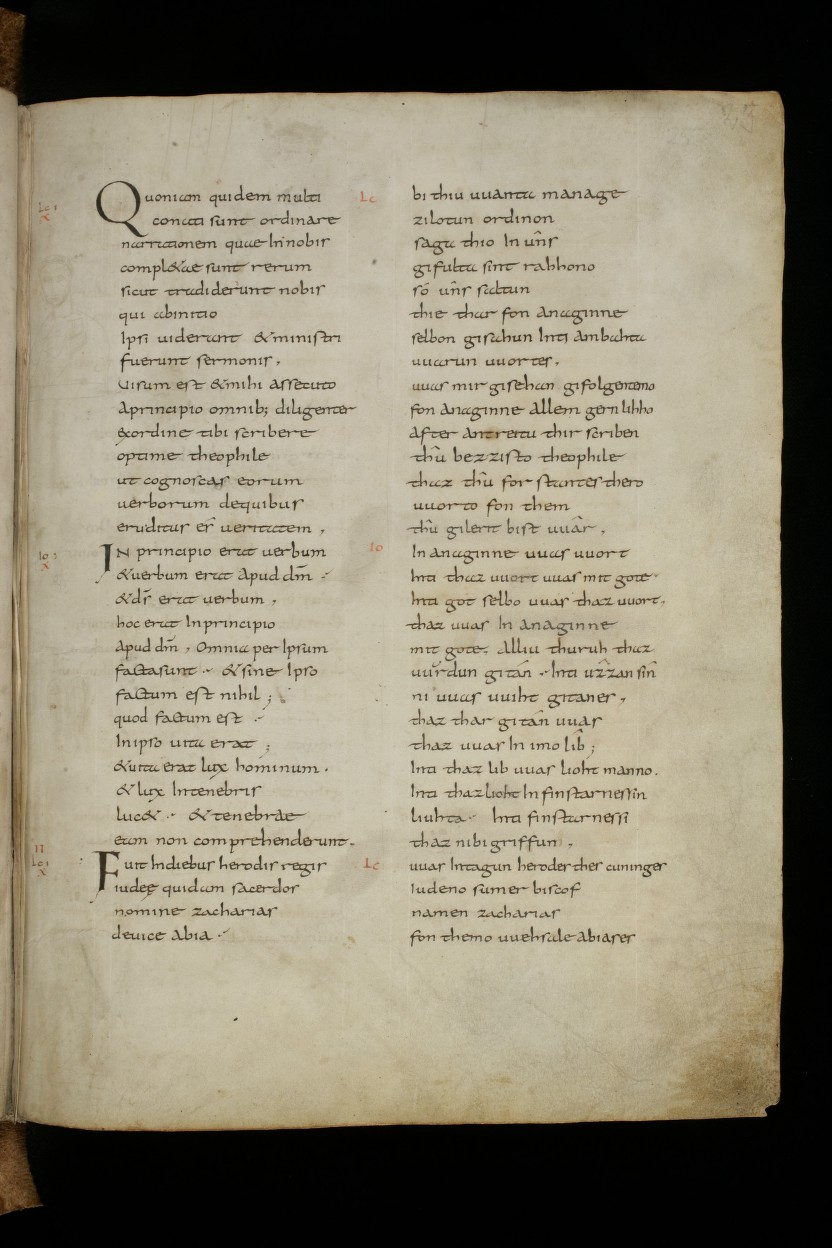 Quoniam quidem multi
conati sunt ordinare
narrationem quae In nobis
compl&ae sunt rerum
sicut tradiderunt nobis
qui abinitio
Ipsi uiderunt &ministri
fuerunt sermonis.
Uisum est &mihi assecuto
Aprincipio omnib; diligenter
exordine tibi scribere
optime theophile
ut cognoscas eorum
uerborum dequibus
eruditus es̄ ueritatem.
IN principio erat uerbum
&uerbum erat Apud dm̄
&ds̄ erat uerbum.
hoc erat In principio
Apud dm̄. Omnia per Ipsum
facta sunt &sine Ipso
factum est nihil;
quod factum est
In ipso uita erat;
&uita erat lux hominum.
& lux Intenebris
luc& &tenebrae
eam non comprehenderunt.
Fuit Indiebus herodis regis
iudeę quidam sacerdos
nomine zacharias
deuice Abia
Lc
bi thiu uuanta manage
zilotun ordinon
saga thio In ûns
gifulta sint rahhono
só ûns saltun
thie thar fon Anaginne
selbon gisahun Inti Ambahta
uuarun uuortes.
uuas mir gisehan gifolgentemo
fon Anaginne Allem gernlihho
After Antreitu thir scriben
thû bezzisto theophile
thaz thû forstantes thero
uuorto fon them
thû gilerit bist uuâr.
Io
In anaginne uuas uuort
Inti thaz uuort uuas mit gote
Inti got selbo uuas thaz uuort.
thaz uuas In anaginne
mit gote. Alliu thuruh thaz
uuurdun gitán Inti ûzzan sín
ni uuas uuiht gitanes.
thaz thar gitán uuas
thaz uuas In imo lîb;
Inti thaz lib uuas lioht manno.
Inti thaz lioht In finstarnessin
liuhta Inti finstarnessi
thaz nibigriffun.
Lc
uuas Intagun herodes thes cuninges
Iudeno sumer biscof
namen zacharias
fon themo uuehsale Abiases